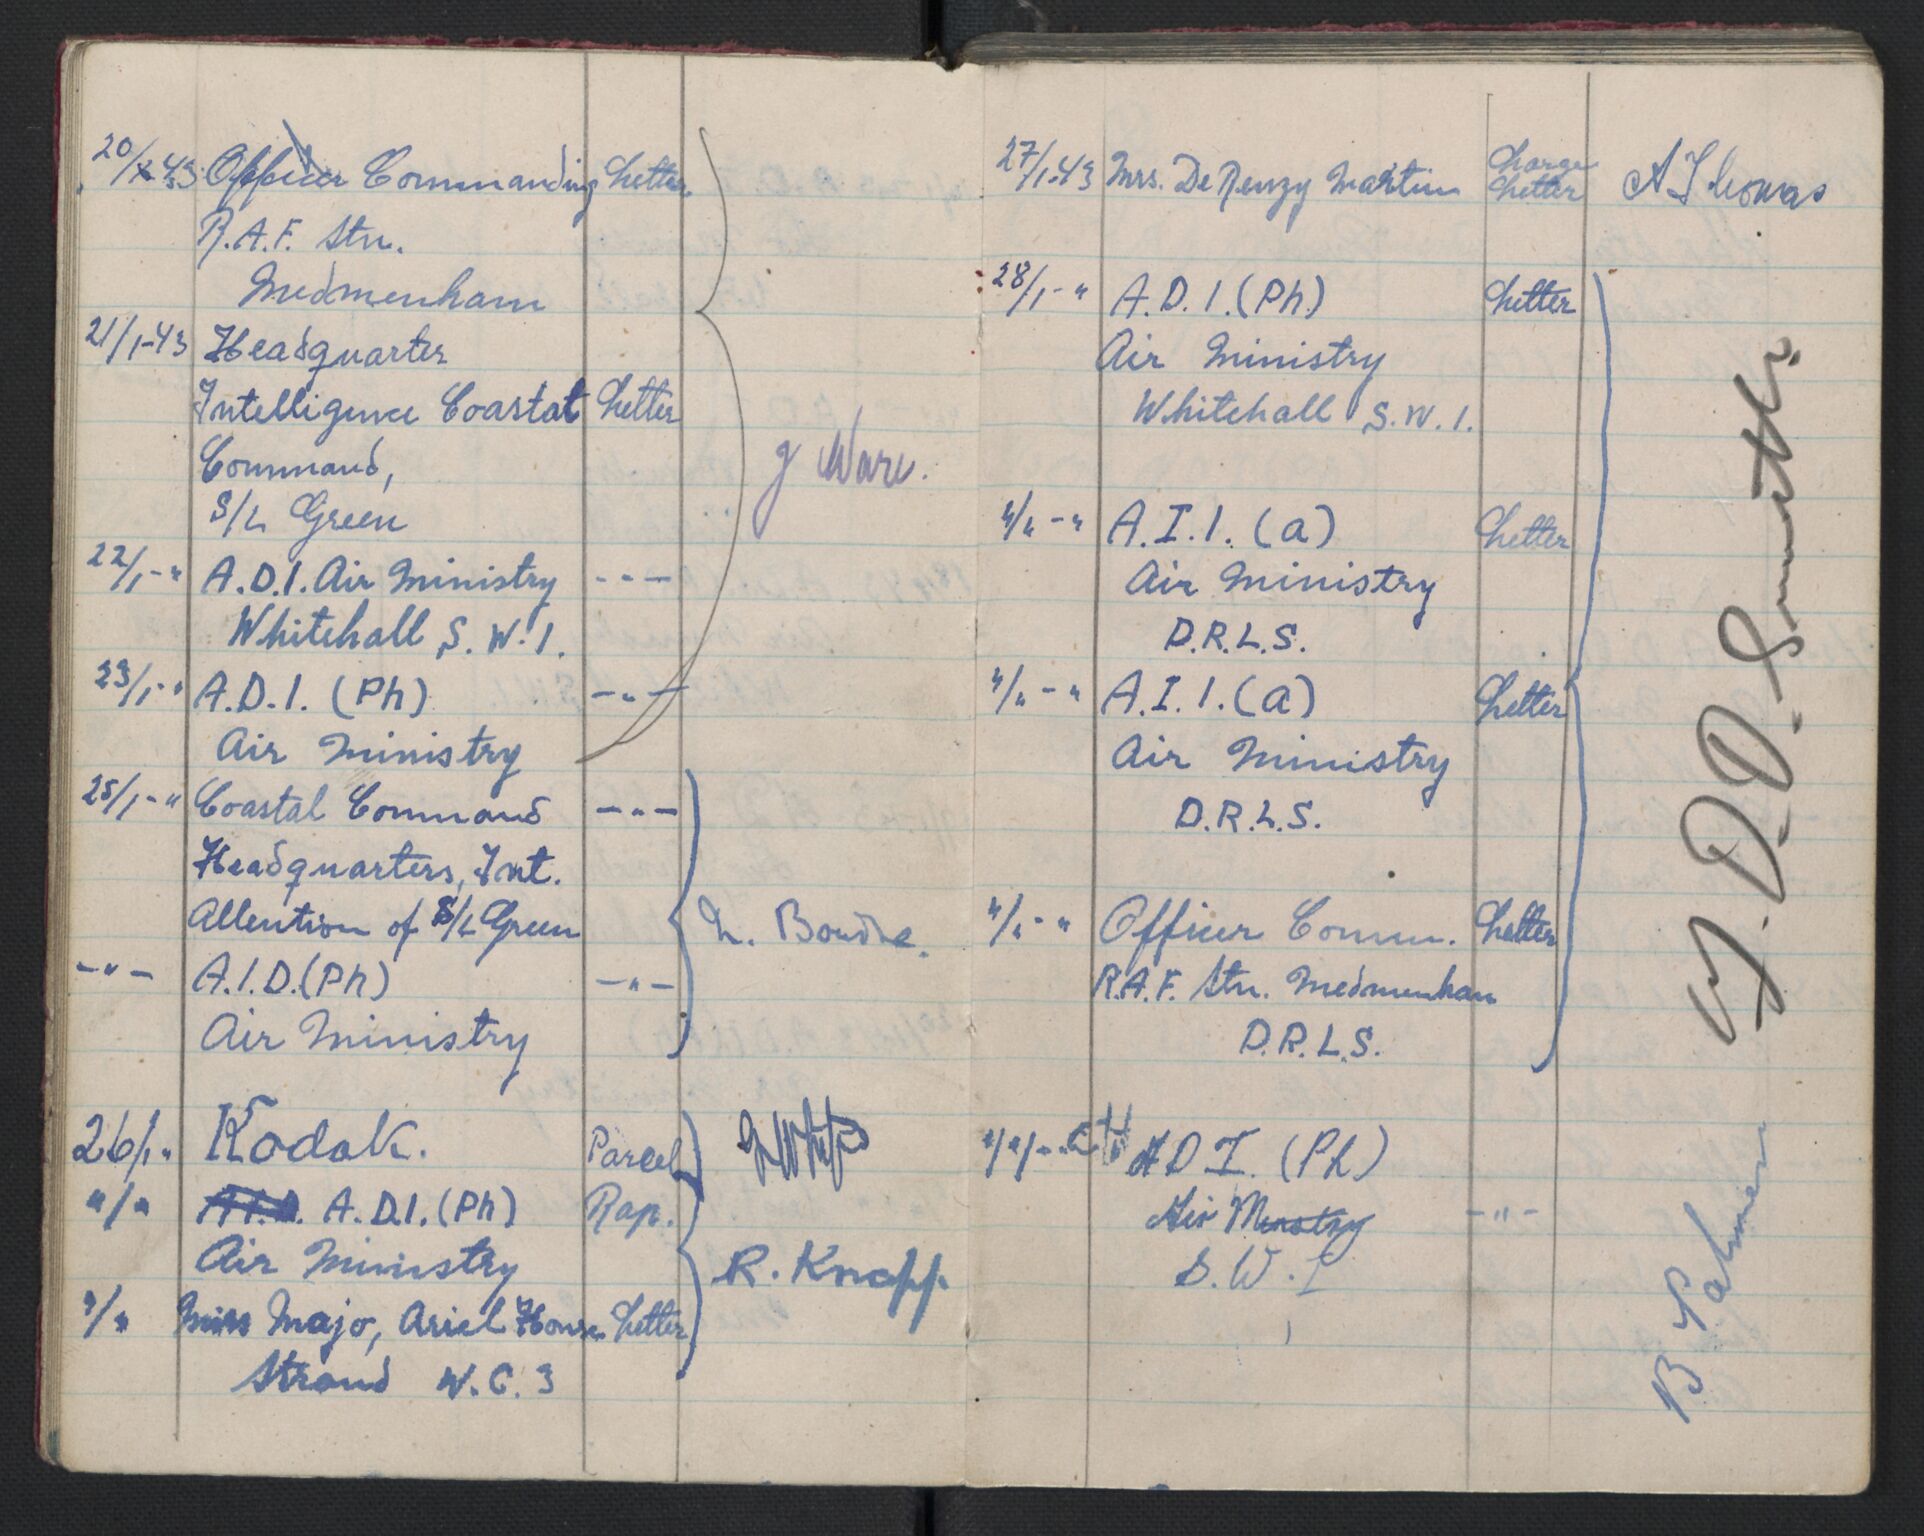 20/1-43 Officer Commanding Letter
R.A.F. Stn.
Medmenham
21/1-43 Headquarter
Intelligence Coastal Letter
Command,
S/L Green
g Ware.
22/1-" A.D.I. Air Ministry -"-
Whitehall S.W.1.
23/1-" A.D.I. (Ph) -"-
Air Ministry
25/1-" Coastal Command -"-
Headquarters, Int.
Attention of S/L Green
L. Bourke.
-"- A.I.D.(Ph) -"-
Air Ministry
26/1." Kodak. Parcel
"/" A.I.D. A.D.I.(Ph) Rap.
Air Ministry
R. Knapp.
"/" Miss Majo, Ariel House Letter
Strand W.C.3
27/1-43 Mrs. De Renzy Martin Charge Letter A Thomas
28/1-" A.D.I.(Ph) Letter
Air Ministry
Whitehall S.W.1.
"/"-" A.I.1.(a) Letter
Air Ministry
D.R.L.S.
"/"-" A.I.1.(a) Letter
Air Ministry
D.R.L.S.
"/"-" Officer Comm. Letter
R.A.F. Stn. Medmenham
D.R.L.S.
"/"/-" A D I. (Ph)
Air Minstry -"-
S.W.1
D.D. Smith
B Palmer